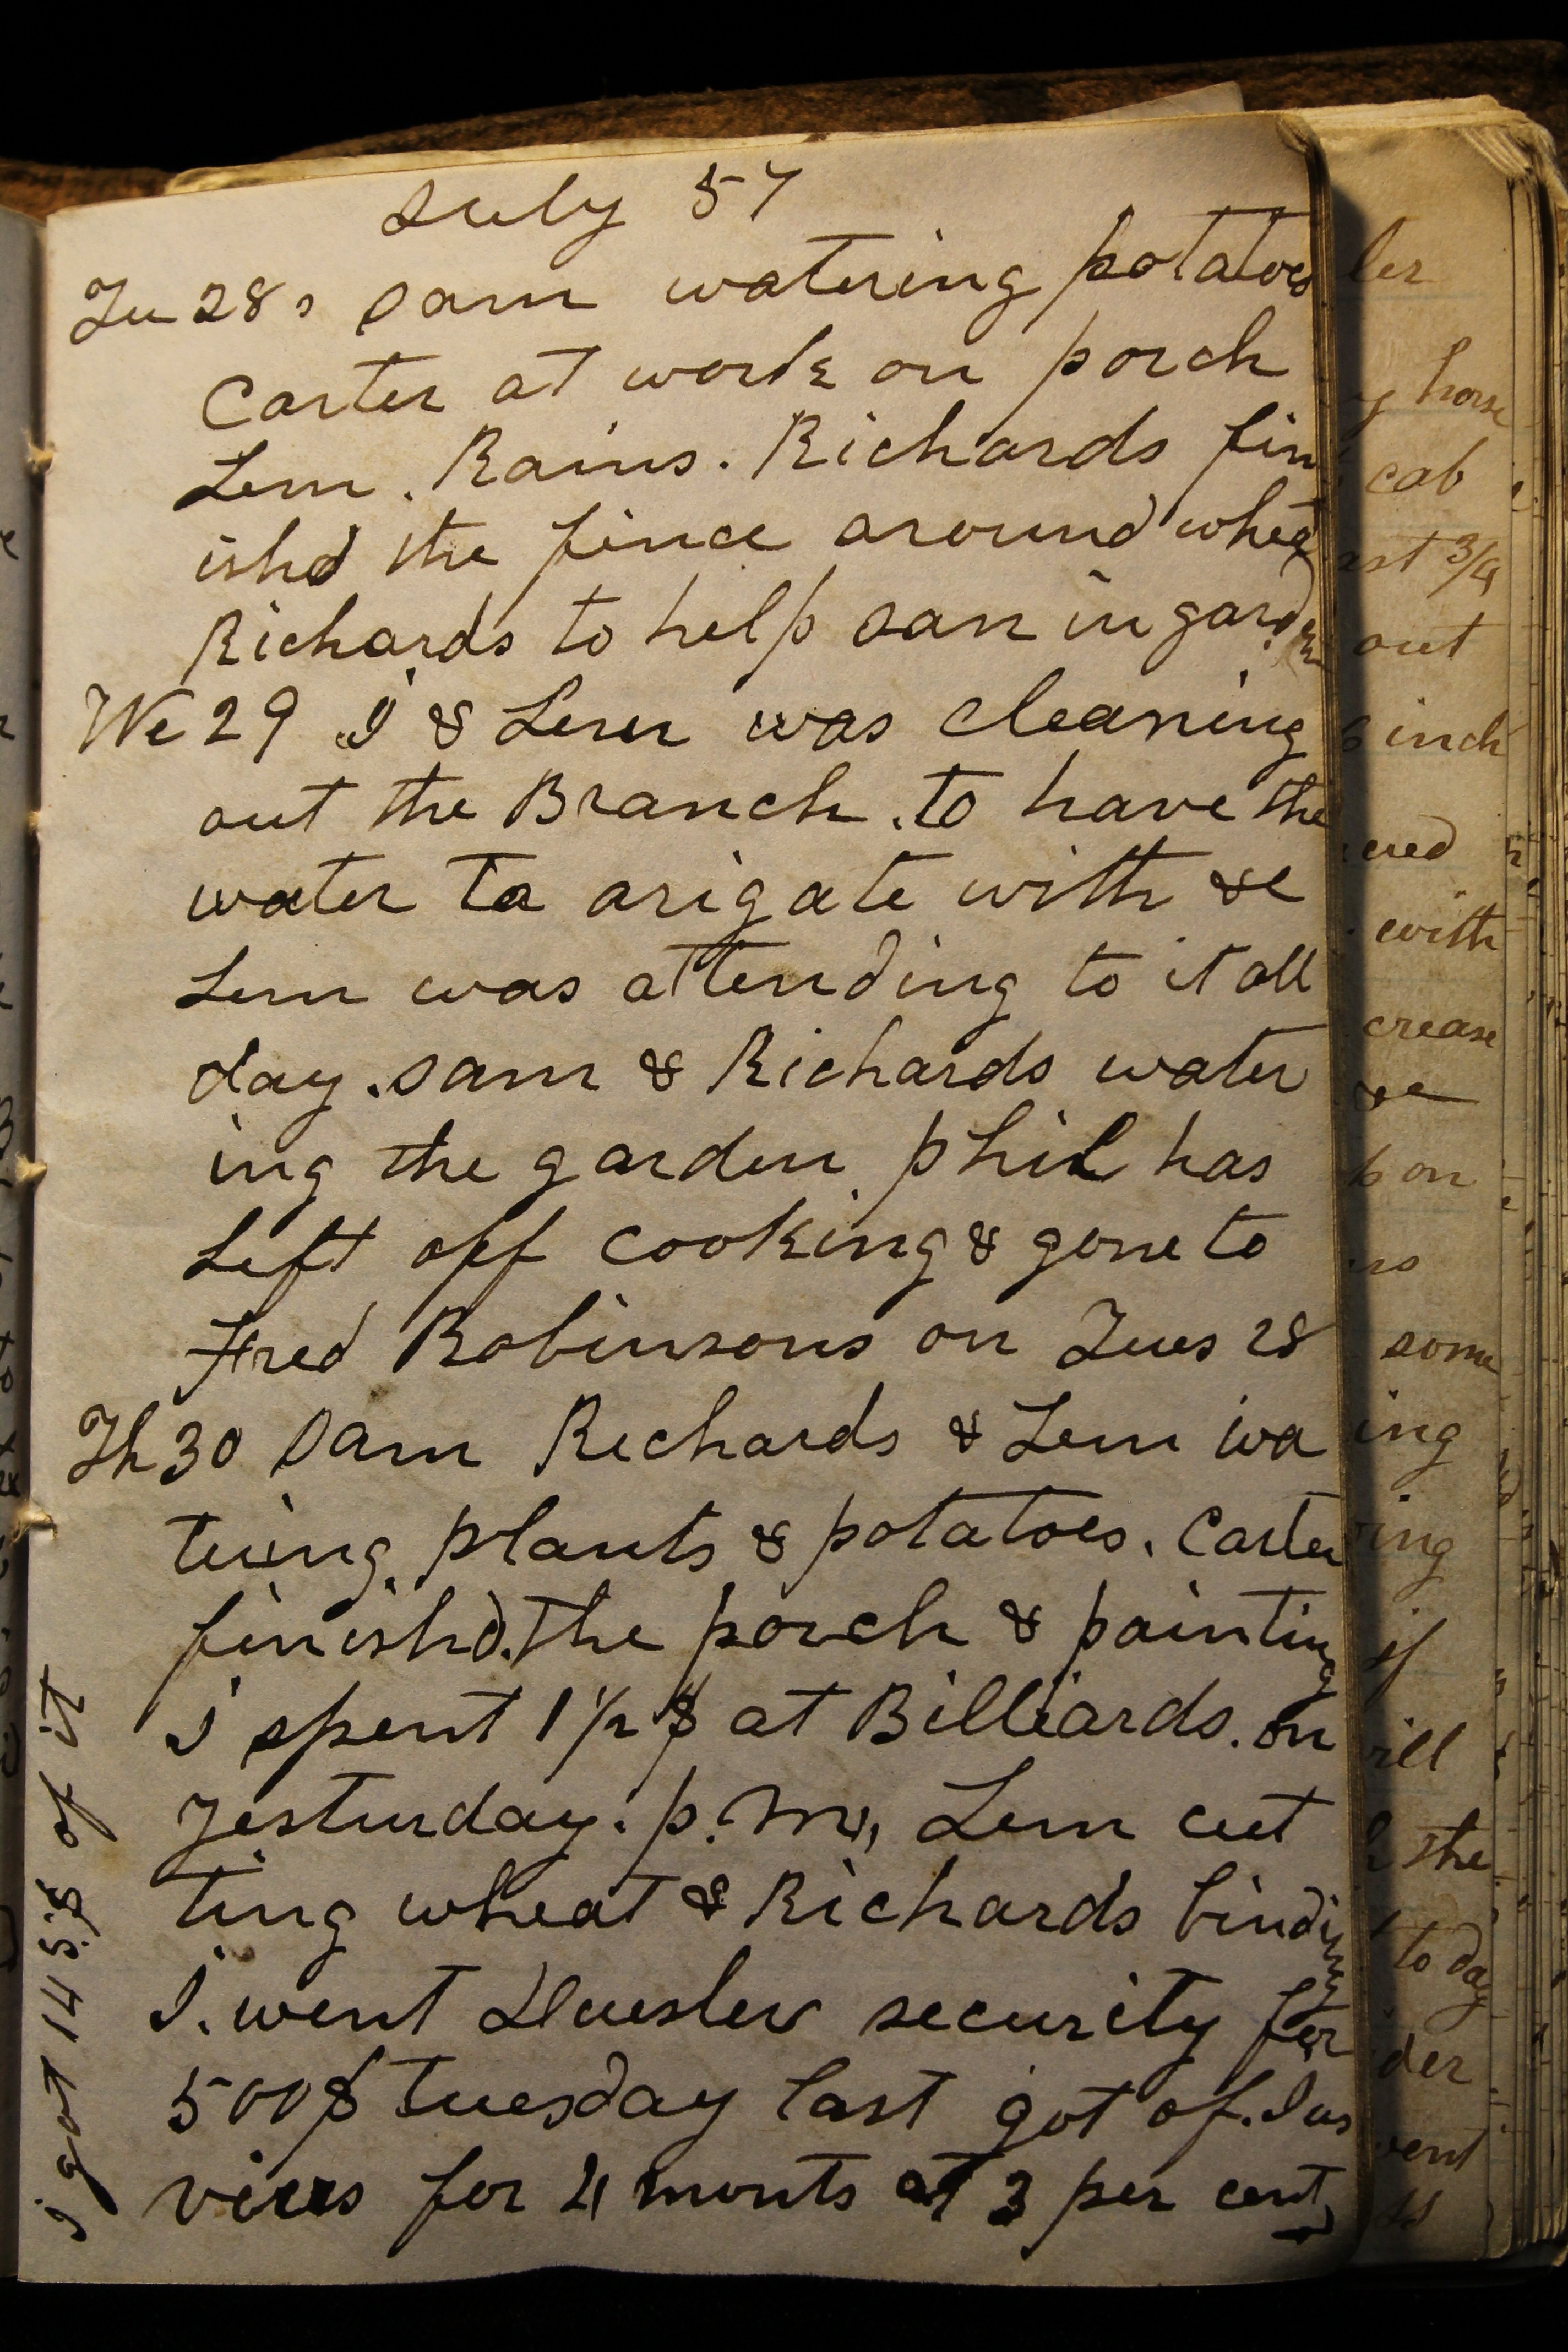 July 57
Tu 28 Sam watering potatoes
Carter at work on porch
Lem. Rains. Richards fin
ishd the fince around wheat
Richards to help Sam in garden
We 29 I & Lem was cleaning
out the Branch. to have the
water to arigate with &c
Lem was attending to it all
day. Sam & Richards water
ing the garden phil has
Left off cooking & gone to
Fred Robinsons on Tues 28
Th 30 Sam Richards & Lem wa
tering plants & potatoes. Carter
finishd. the porch & painting
I spent 1 1/2 $ at Billiards. on
Yesturday. p. m, Lem cut
ting wheat & Richards binding
I. went security for
500$ tuesday last got of.
for 4 monts at 3 per cent
I got 145$ of it
ler
horse
cab
3/4
out
inch
with
crease
&c
on
some
ing
ing
if
the
to day